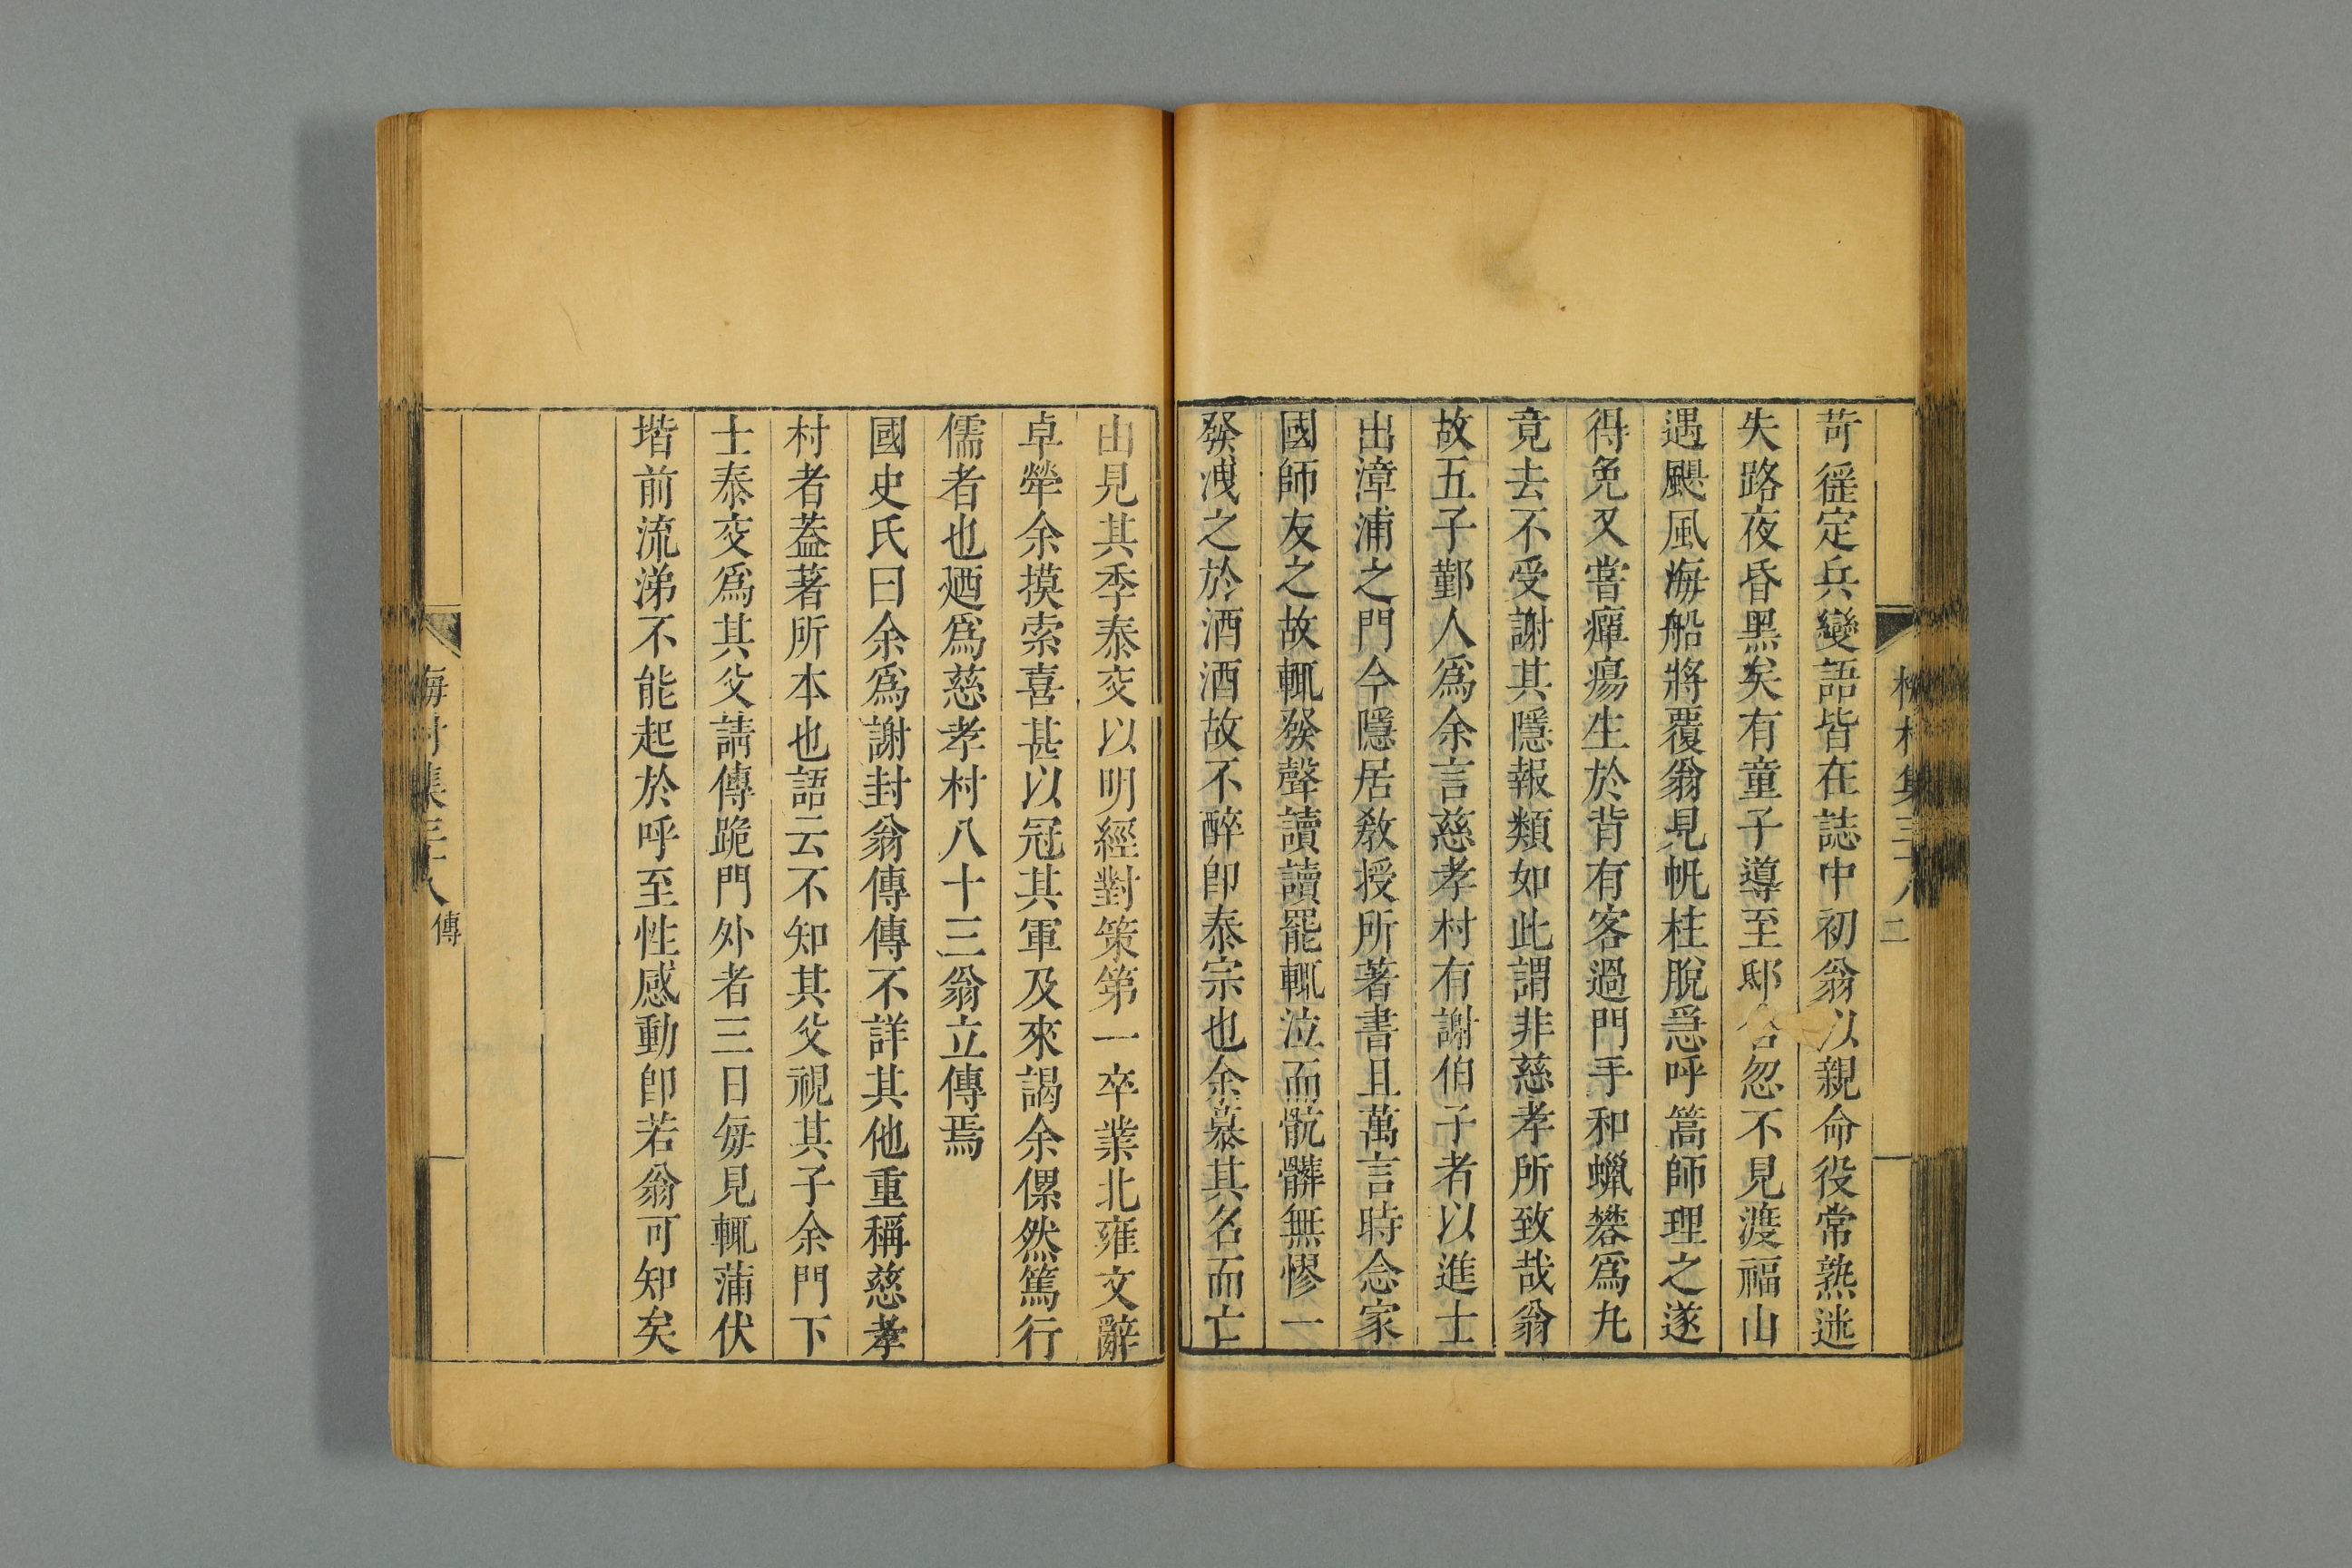 梅村集三十八 二
苛徭定兵變語皆在誌中初翁以親命役常熟迷
失路夜昏黑矣有童子導至邸舍忽不見渡福山
遇颶風海船將覆翁見帆桂脫急呼篙師理之遂
得免又嘗癉瘍生於背有客過門手和蠟礬爲九
竟去不受謝其隱報類如此謂非慈孝所致哉翁
故五子鄞人爲余言慈孝村有謝伯子者以進士
出漳浦之門今隱居敎授所著書且萬言時念家
國師友之故輒發聲讀讀罷輒泣而骯髒無憀一
發洩之於酒酒故不醉卽泰宗也余慕其名而亡
由見其季泰交以明經對策第一卒業北雍文辭
卓犖余摸索喜甚以冠其軍及來謁余傫然篤行
儒者也廼爲慈孝村八十三翁立傳焉
國史氏曰余爲謝封翁傳傳不詳其他重稱慈孝
村者葢著所本也語云不知其父視其子余門下
士泰交爲其父請傳跪門外者三日每見輒蒲伏
堦前流涕不能起於呼至性感動卽若翁可知矣
梅村集三十八 傳